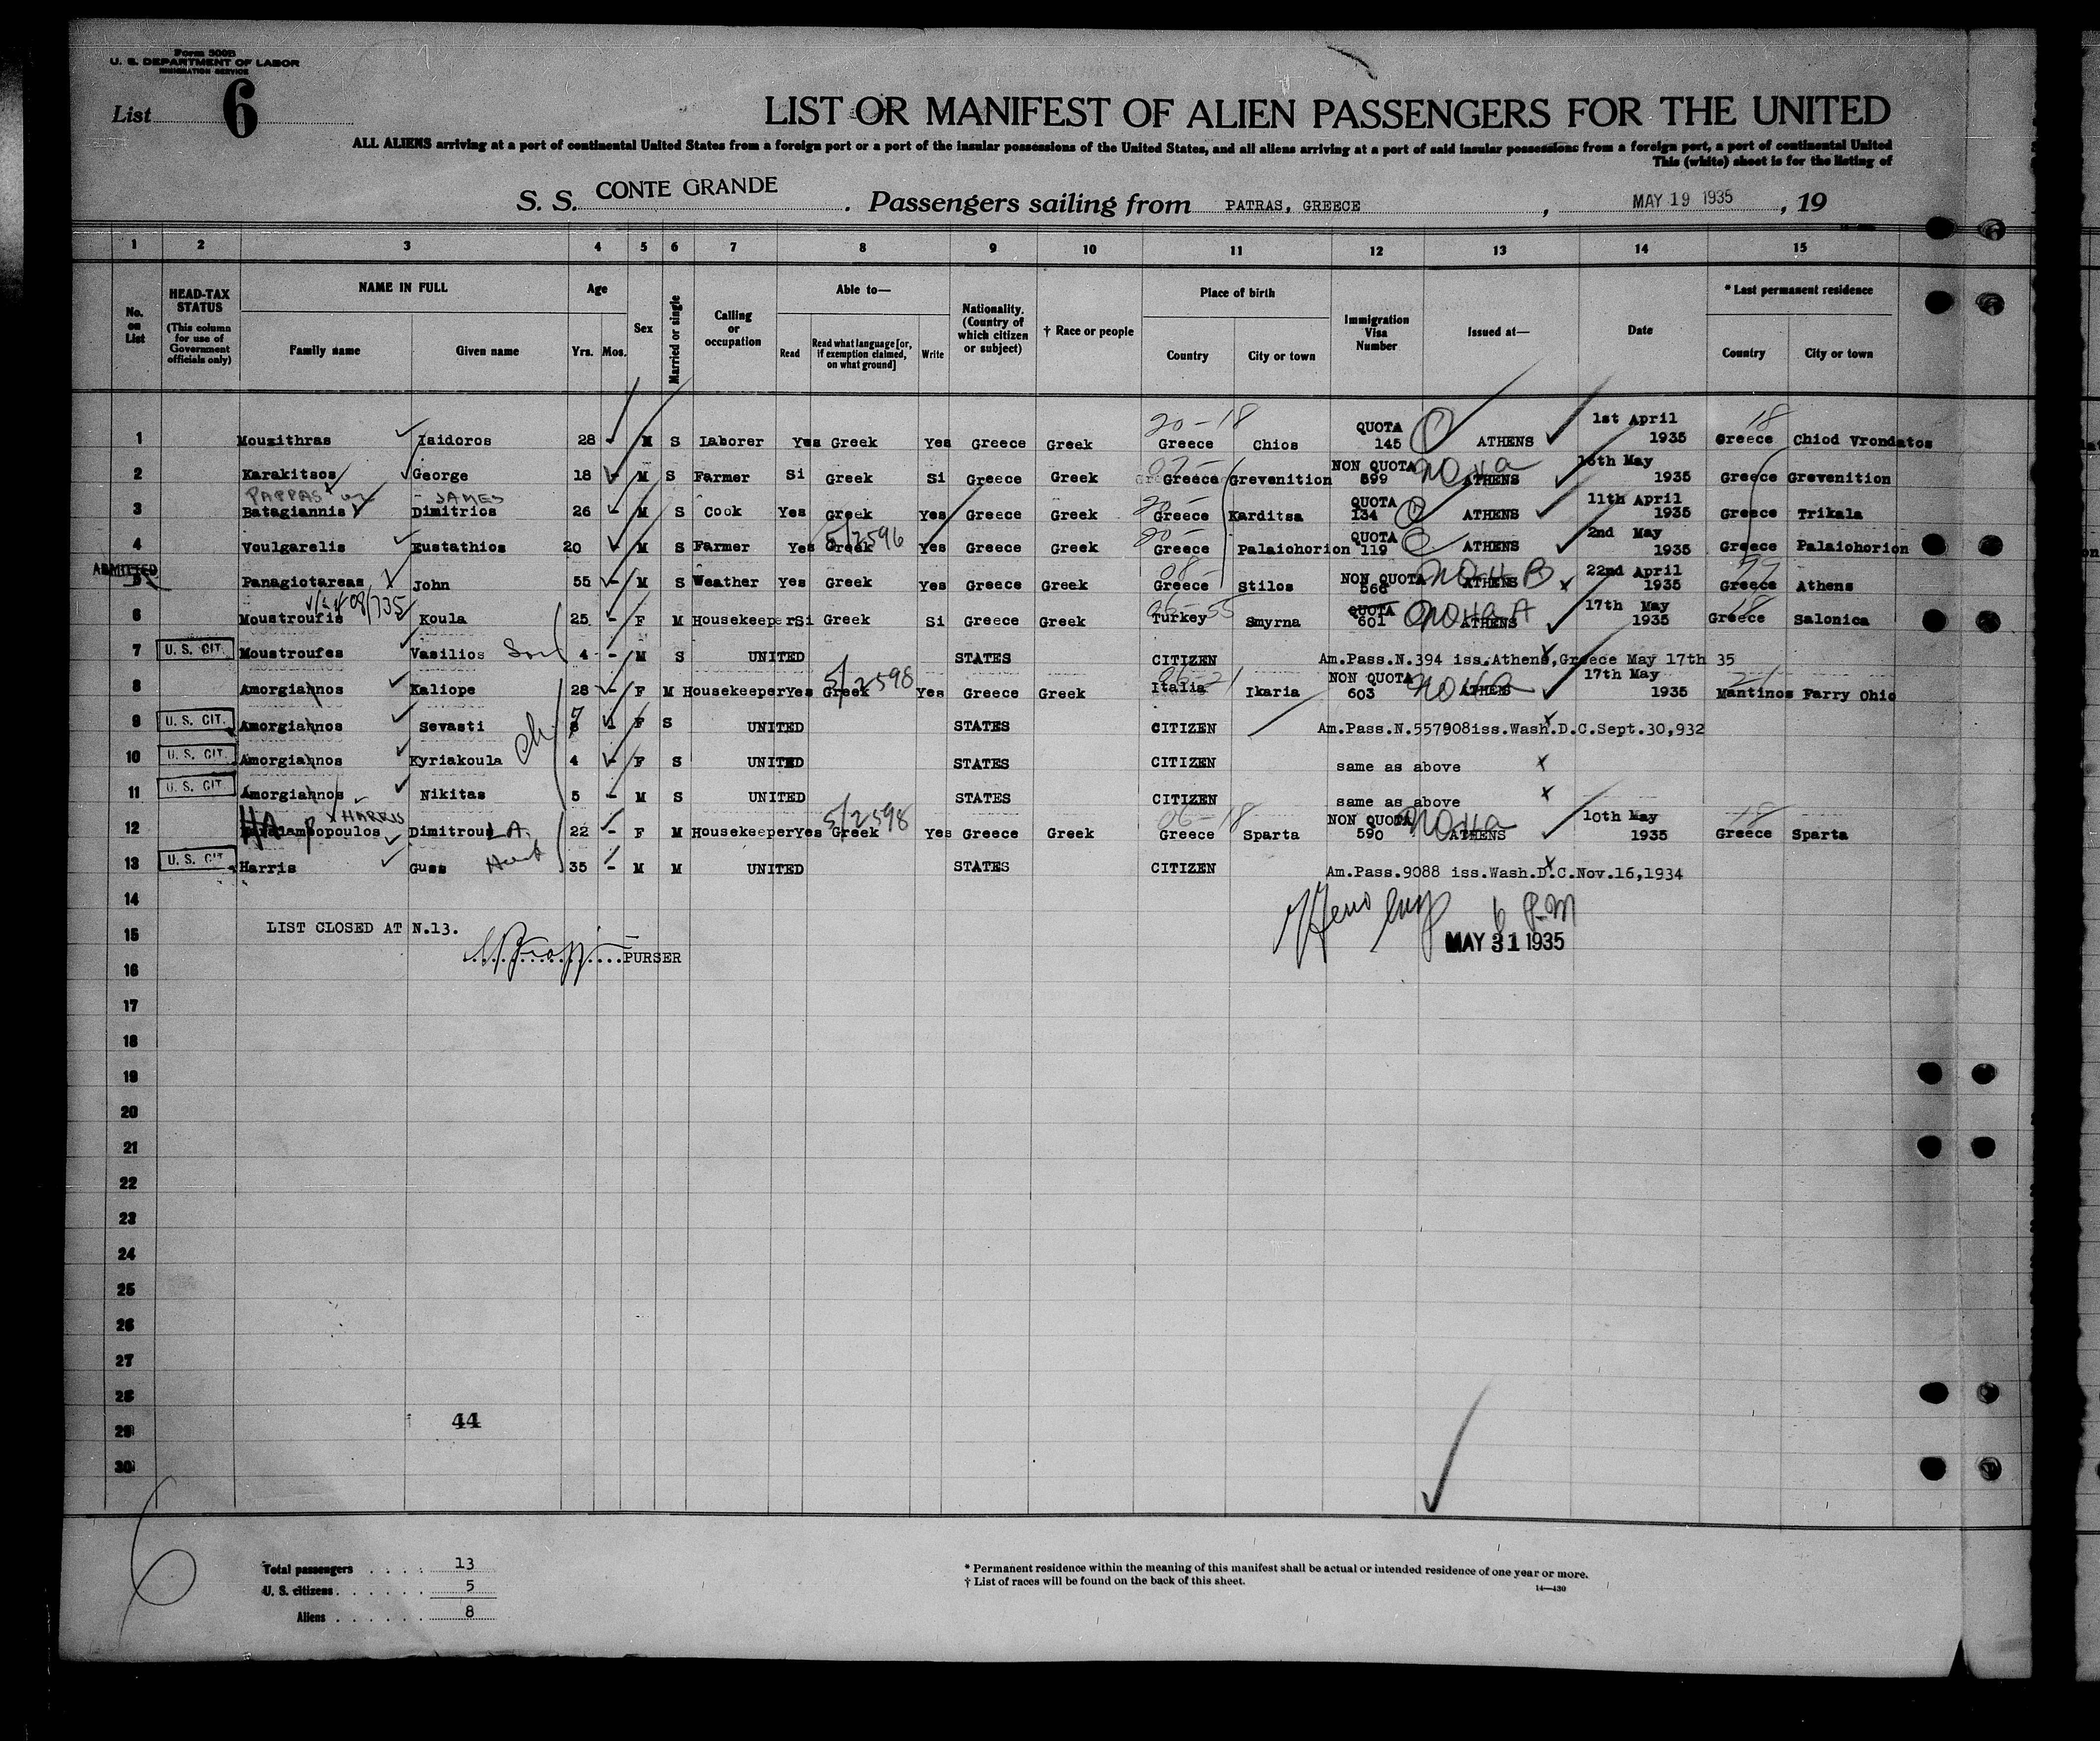 Form 500B
U. S. DEPARTMENT OF LABOR
IMMIGRATION SERVICE
List 6
LIST OR MANIFEST OF ALIEN PASSENGERS FOR THE UNITED
ALL ALIENS arriving at a port of continental United States from a foreign port or a port of the insular possessions of the United States, and all aliens arriving at a port of said insular possessions from a foreign port, a port of continental United
This (white) sheet is for the listing of
S. S. CONTE GRANDE. Passengers sailing from PATRAS, GREECE, MAY 19 1935, 19
1 2 3 4 5 6 7 8 9 10 11 12 13 14 15
No. on List
HEAD-TAX STATUS (This column for use of Government officials only)
NAME IN FULL Family name Given name
Age Yrs. Mos.
Sex
Married or single
Calling or occupation
Able to— Read Read what language [or, if exemption claimed, on what ground] Write
Nationality. (Country of which citizen or subject)
† Race or people
Place of birth Country City or town
Immigration Visa Number
Issued at—
Date
* Last permanent residence Country City or town
20-18 QUOTA 1st April 18
1 Mouzithras Isidoros 28 M S Laborer Yes Greek Yes Greece Greek Greece Chios 145 ATHENS 1935 Greece Chiod Vrondatos
NON QUOTA 16th May
2 Karakitsos George 18 - M S Farmer Si Greek Si Greece Greek Greece Grevenition 599 ATHENS 1935 Greece Grevenition
PAPPAS JAMES QUOTA 11th April
3 Batagiannis Dimitrios 26 - M S Cook Yes Greek Yes Greece Greek Greece Karditsa 134 ATHENS 1935 Greece Trikala
5/2596 QUOTA 2nd May
4 Voulgarelis Eustathios 20 M S Farmer Yes Greek Yes Greece Greek Greece Palaiohorion 119 ATHENS 1935 Greece Palaiohorion
ADMITTED NON QUOTA 22nd April
5 Panagiotareas John 55 - M S Weather Yes Greek Yes Greece Greek Greece Stilos 566 ATHENS 1935 Greece Athens
QUOTA 17th May 18
6 Moustroufis Koula 25 - F M Housekeeper Si Greek Si Greece Greek Turkey Smyrna 601 ATHENS 1935 Greece Salonica
7 U. S. CIT. Moustroufes Vasilios Son 4 - M S UNITED STATES CITIZEN Am.Pass.N.394 iss.Athens,Greece May 17th 35
5/2598 NON QUOTA 17th May 21
8 Amorgiannos Kaliope 28 - F M Housekeeper Yes Greek Yes Greece Greek Italia Ikaria 603 ATHENS 1935 Mantinos Farry Ohio
9 U. S. CIT. Amorgiannos Sevasti 7 - F S UNITED STATES CITIZEN Am.Pass.N.557908iss.Wash.D.C.Sept.30,932
10 U. S. CIT. Amorgiannos Kyriakoula ch 4 - F S UNITED STATES CITIZEN same as above
11 U. S. CIT. Amorgiannos Nikitas 5 - M S UNITED STATES CITIZEN same as above
HARRIS 5/2598 06-18 NON QUOTA 10th May 18
12 Dimitroula 22 - F M Housekeeper Yes Greek Yes Greece Greek Greece Sparta 590 ATHENS 1935 Greece Sparta
13 U. S. CIT. Harris Guss 35 - M M UNITED STATES CITIZEN Am.Pass.9088 iss.Wash.D.C.Nov.16,1934
14
LIST CLOSED AT N.13.
6 P.M
15 MAY 31 1935
PURSER
16
17
18
19
20
21
22
23
24
25
26
27
28
44
29
30
6
Total passengers 13
U. S. citizens 5
Aliens 8
* Permanent residence within the meaning of this manifest shall be actual or intended residence of one year or more.
† List of races will be found on the back of this sheet.
14—430